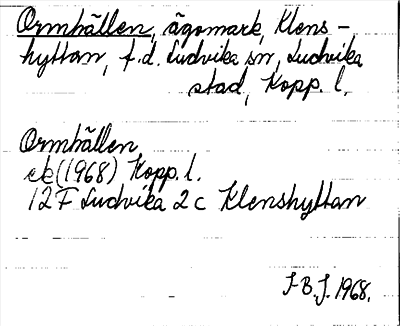 Ormhällen, ägomark, Klens-
hyttan, f.d. Ludvika sn, Ludvika
stad, Kopp. l.
Ormhällen
ek (1968) Kopp. l.
12F Ludvika 2 c Klenshyttan
I-B.J. 1968.